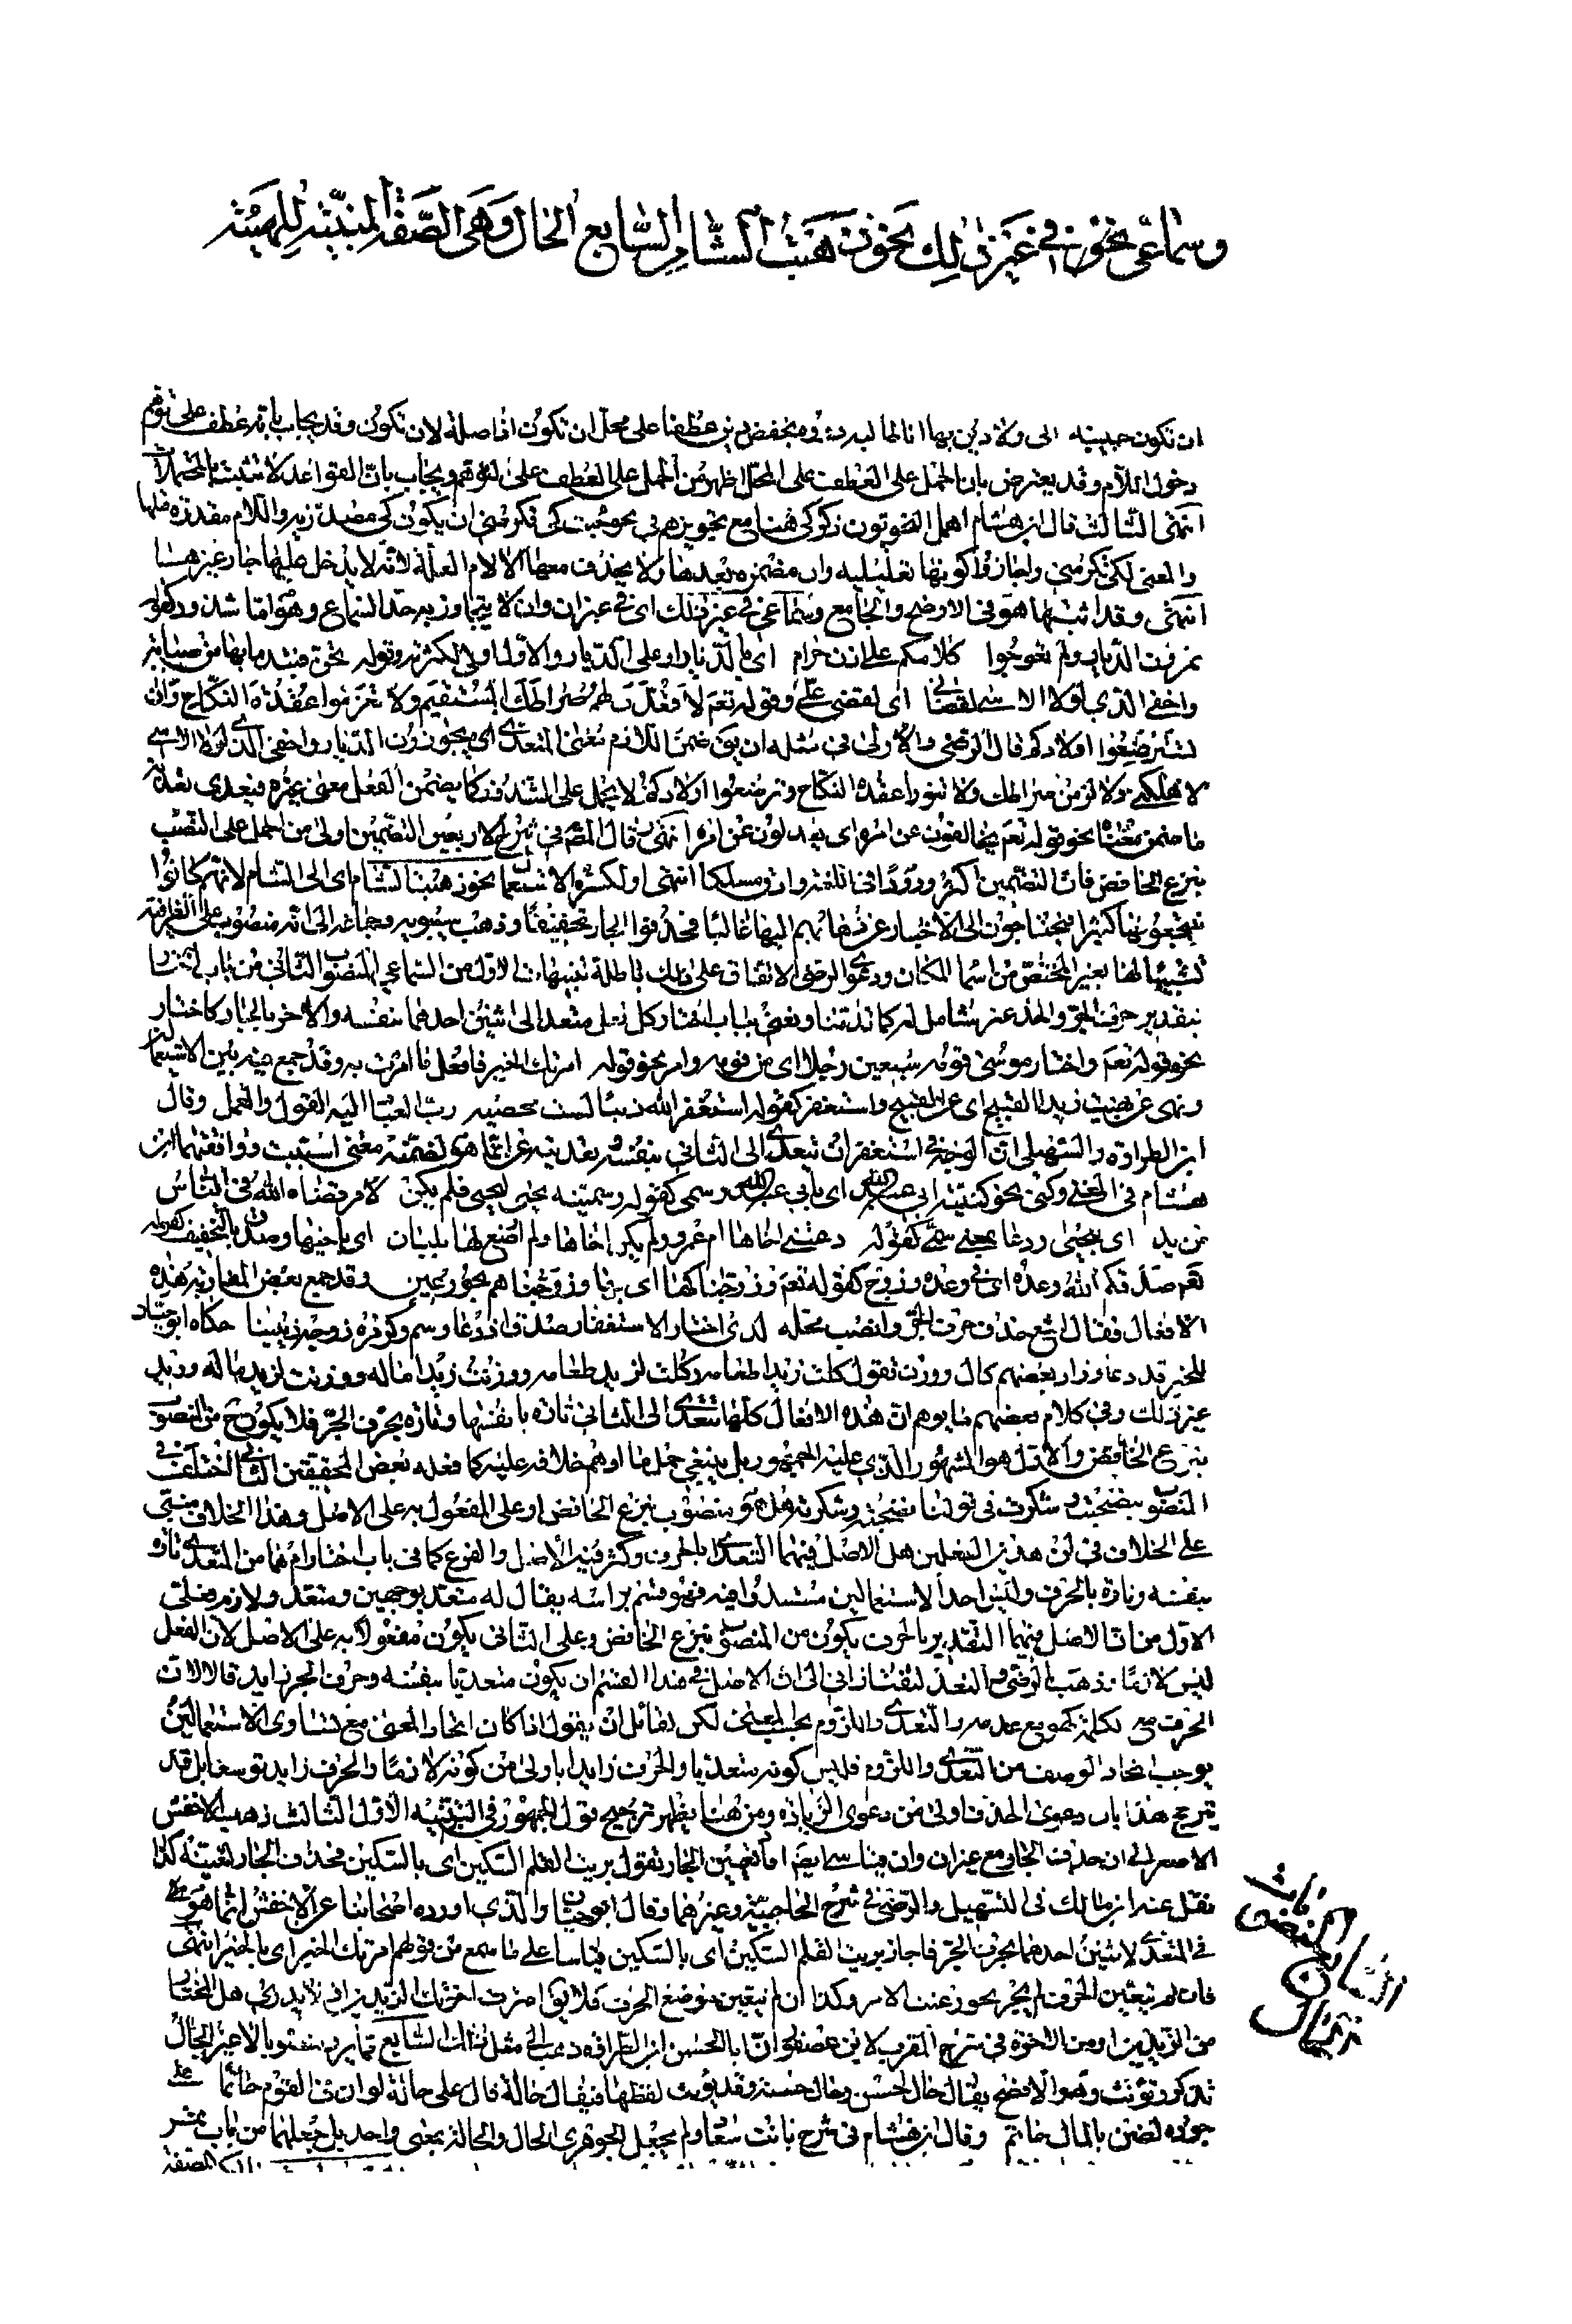 وسماعي نحو في غير ذلك نحو ذهبت الشام السابع الحال وهى الصفة المبينة للهيئة
ان تكون حبيبة الى ولا دين بها انا طالبه بخفض دين عطفا على محل ان تكون اذ اصله لان تكون وقد يجاب بانه عطف على توهم
دخول اللام وقد يعترض بان الحمل على العطف على المحل اظهر من الحمل على العطف على التوهم ويجاب بان القواعد لا تثبت بالمحتملات
انتهى الثالث قال ابن هشام اهمل النحويون ذكر كى هنا مع تجويزهم فى نحو جئت كى تكرمنى ان يكون كى مصدرية واللام مقدرة قبلها
والمعنى لكى تكرمنى واجازوا كونها تعليلية وان مضمرة بعدها ولا يحذف معها الا لام العلة لانه لا يدخل عليها جار غيرها
انتهى وقد اثبتها هو فى الاوضح والجامع وسماعى فى غير ذلك اى فى غير ان وان لا يتجاوز به حد السماع وهو اما شذوذ كقوله
تمرون الديار ولم تعوجوا كلامكم على اذن حرام اى بالديار او على الديار والاول اولى لكثرته وقوله تحن فتبدى ما بها من صبابة
واخفى الذى لولا الاسى لقضانى اى لقضى على وقوله تعم لاقعدن لهم صراطك المستقيم ولا تعزموا عقدة النكاح وان
تسترضعوا اولادكم قال الرضى والاولى فى مثله ان يق ضمن اللازم معنى المتعدى اى يجوزون الديار واخفى الذى لولا الاسى
لاهلكنى ولالزمن صراطك ولا تنووا عقدة النكاح وترضعوا اولادكم لا يحمل على الشذوذ كما يضمن الفعل معنى غيره فيعدى تعدية
ما ضمن معناه نحو قوله تعم يخالفون عن امره اى يعدلون عن امره انتهى قال المص فى شرح الاربعين التضمين اولى من الحمل على النصب
بنزع الخافض فان التضمين اكثر ورودا فى اللغة وادق مسلكا انتهى او لكثرة الاستعمال نحو ذهبت الشام اى الى الشام لانهم كانوا
ينتجعونها كثيرا فيحتاجون الى الاخبار عن ذهابهم اليها غالبا فحذفوا الجار تخفيفا وذهب سيبويه وجماعة الى انه منصوب على الظرفية
تشبيها لها بغير المختص من اسما المكان ودعوى الرضى الاتفاق على ذلك باطلة تنبيهات الاول من السماعى المنصوب الثانى من باب اختار
بتقدير حرف الجر والحذف عنه شامل له كما ذقتنا ونعنى بباب اختار كل فعل متعد الى اثنين احدهما بنفسه والاخر بالجار كاختار
نحو قوله تعم واختار موسى قومه سبعين رجلا اى من قومه وامر نحو قوله امرتك الخير فافعل ما امرت به وقد جمع فيه بين الاستعمالين
ونهى نحو نهيت زيدا القبيح اى عن القبيح واستغفر كقوله استغفر الله ذنبا لست محصيه رب العباد اليه القول والعمل وقال
ابن الطراوة والسهيلى ان الوجه فى استغفر ان يتعدى الى الثانى بنفسه وتعديته بمن انما هو لتضمنه معنى استتبت ووافقهما ابن
هشام فى المغنى وكنى نحو كنيته ابا عبد الله اى بابى عبد الله وسمى كقوله وسميته يحيى ليحيى فلم يكن لامر قضاه الله فى الناس
من بد اى بيحيى ودعا بمعنى سمى كقوله دعتنى اخاها ام عمرو ولم اكن اخاها ولم ارضع لها بلبان اى باخيها وصدق بالتخفيف كقوله
تعم صدقكم الله وعده اى فى وعده وزوج كقوله تعم وزوجناكها اى بها وزوجناهم بحور عين وقد جمع بعض المغاربة هذه
الافعال فقال شع حذف حرف الجر وانصب محله لدى اختار الاستغفار صدق اذ دعا وسم وكن مره زوجن زينبنا حكاه ابو حيان
للخير قد دعا وزاد بعضهم كال ووزن تقول كلت زيدا طعامه وكلت لزيد طعامه ووزنت زيدا ماله ووزنت لزيد ماله وزيد
غير ذلك وفى كلام بعضهم ما يوهم ان هذه الافعال كلها تتعدى الى الثانى تارة بانفسها وتارة بحرف الجر فلا يكون ح من المنصوب
بنزع الخافض والاول هو المشهور الذى عليه الجمهور بل ينبغى حمل ما اوهم خلافه عليه كما فعله بعض المحققين الثانى اختلف فى
المنصوب بنصحت وشكرت فى قولنا نصحته وشكرته هل هو منصوب بنزع الخافض او على المفعول به على الاصل وهذا الخلاف مبنى
على الخلاف فى ان هذين الفعلين هل الاصل فيهما التعدى بالحرف وكثر فيه الاصل والفرع كما فى باب اختار ام هما من المتعدى تارة
بنفسه وتارة بالحرف وليس احد الاستعمالين مستندا فيه فهو قسم براسه يقال له متعد بوجهين ومتعد ولازم فعلى
الاول من ان الاصل فيهما التقدير بالحرف يكون من المنصوب بنزع الخافض وعلى الثانى يكون مفعولا به على الاصل لان الفعل
ليس لازما وذهب الرضى والسعد التفتازانى الى ان الاصل فى هذا القسم ان يكون متعديا بنفسه وحرف الجر زايد قالا لان
الحرف مع والتعدى واللزوم بحسب المعنى لكن لقائل ان يقول اذا كان اتحاد المعنى مع تساوى الاستعمالين
يوجب اتحاد الوصف من التعدى واللزوم فليس كونه متعديا والحرف زايدا باولى من كونه لازما والحرف زايد توسعا بل قد
يترجح هذا بان دعوى الحذف اولى من دعوى الزيادة ومن هنا يظهر ترجيح قول الجمهور فى التنبيه الاول الثالث ذهب الاخفش
الاصغر الى ان حذف الجار مع غير ان وان قياسى ايضا اذا تعين الجار تقول بريت القلم السكين اى بالسكين فحذف الجار لتعينه كذا
نقل عنه ابن مالك فى التسهيل والرضى فى شرح الحاجبية وغيرهما وقال ابو حيان والذى اورده اصحابنا عن الاخفش انما هو
فى المتعدى لاثنين احدهما بحرف الجر فاجاز بريت القلم السكين اى بالسكين قياسا على ما سمع من قولهم امرتك الخير اى بالخير انتهى
فان لم يتعين الحرف لم يجز نحو رغبت الامر وكذا ان لم يتعين موضع الحرف فلا يق اخترت اخوتك الزيدين اذ لا يدرى هل المختار
من الزيدين او من الاخوة فى شرح المقرب لابن عصفور ان ابا الحسن ابن الطراوة ذهب الى مثل ذلك السابع مما يرد منصوبا لا غير الحال
تذكر وتؤنث وهو الافصح يقال حال حسن وحال حسنة وقد يؤنث لفظها فيقال حالة قال على حالة لو ان فى القوم حاتما على
جوده لضن بالمال حاتم وقال ابن هشام فى شرح بانت سعاد ولم يجعل الجوهرى الحال والحالة بمعنى واحد بل جعلهما من باب تمر
السابع من المنصوبات
الحال